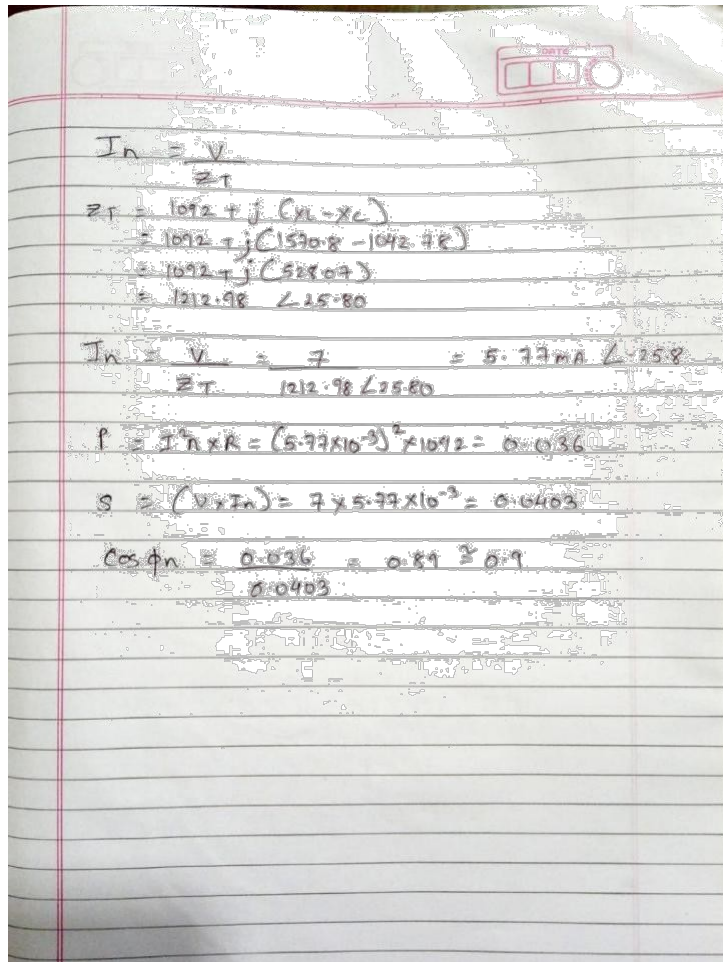 DATE
In = V / ZT
ZT = 1092 + j (XL - XC)
= 1092 + j(1570.8 - 1042.78)
= 1092 + j (528.07)
= 1212.98 ∠25.80
In = V / ZT = 7 / 1212.98 ∠25.80 = 5.77mA ∠-25.8
P = I²n x R = (5.77x10⁻³)² x 1092 = 0.036
S = (V x In) = 7 x 5.77 x 10⁻³ = 0.0403
Cos φn = 0.036 / 0.0403 = 0.89 ≅ 0.9